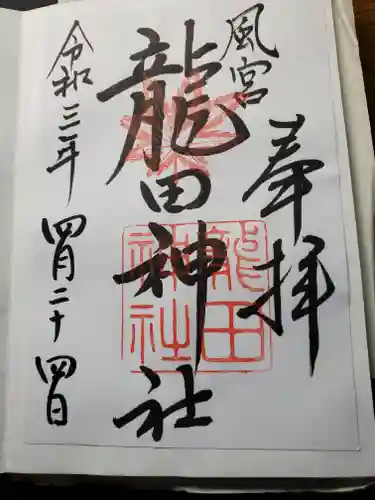 風宮
奉拝
龍田神社
龍田
神社
令和三年四月二十四日